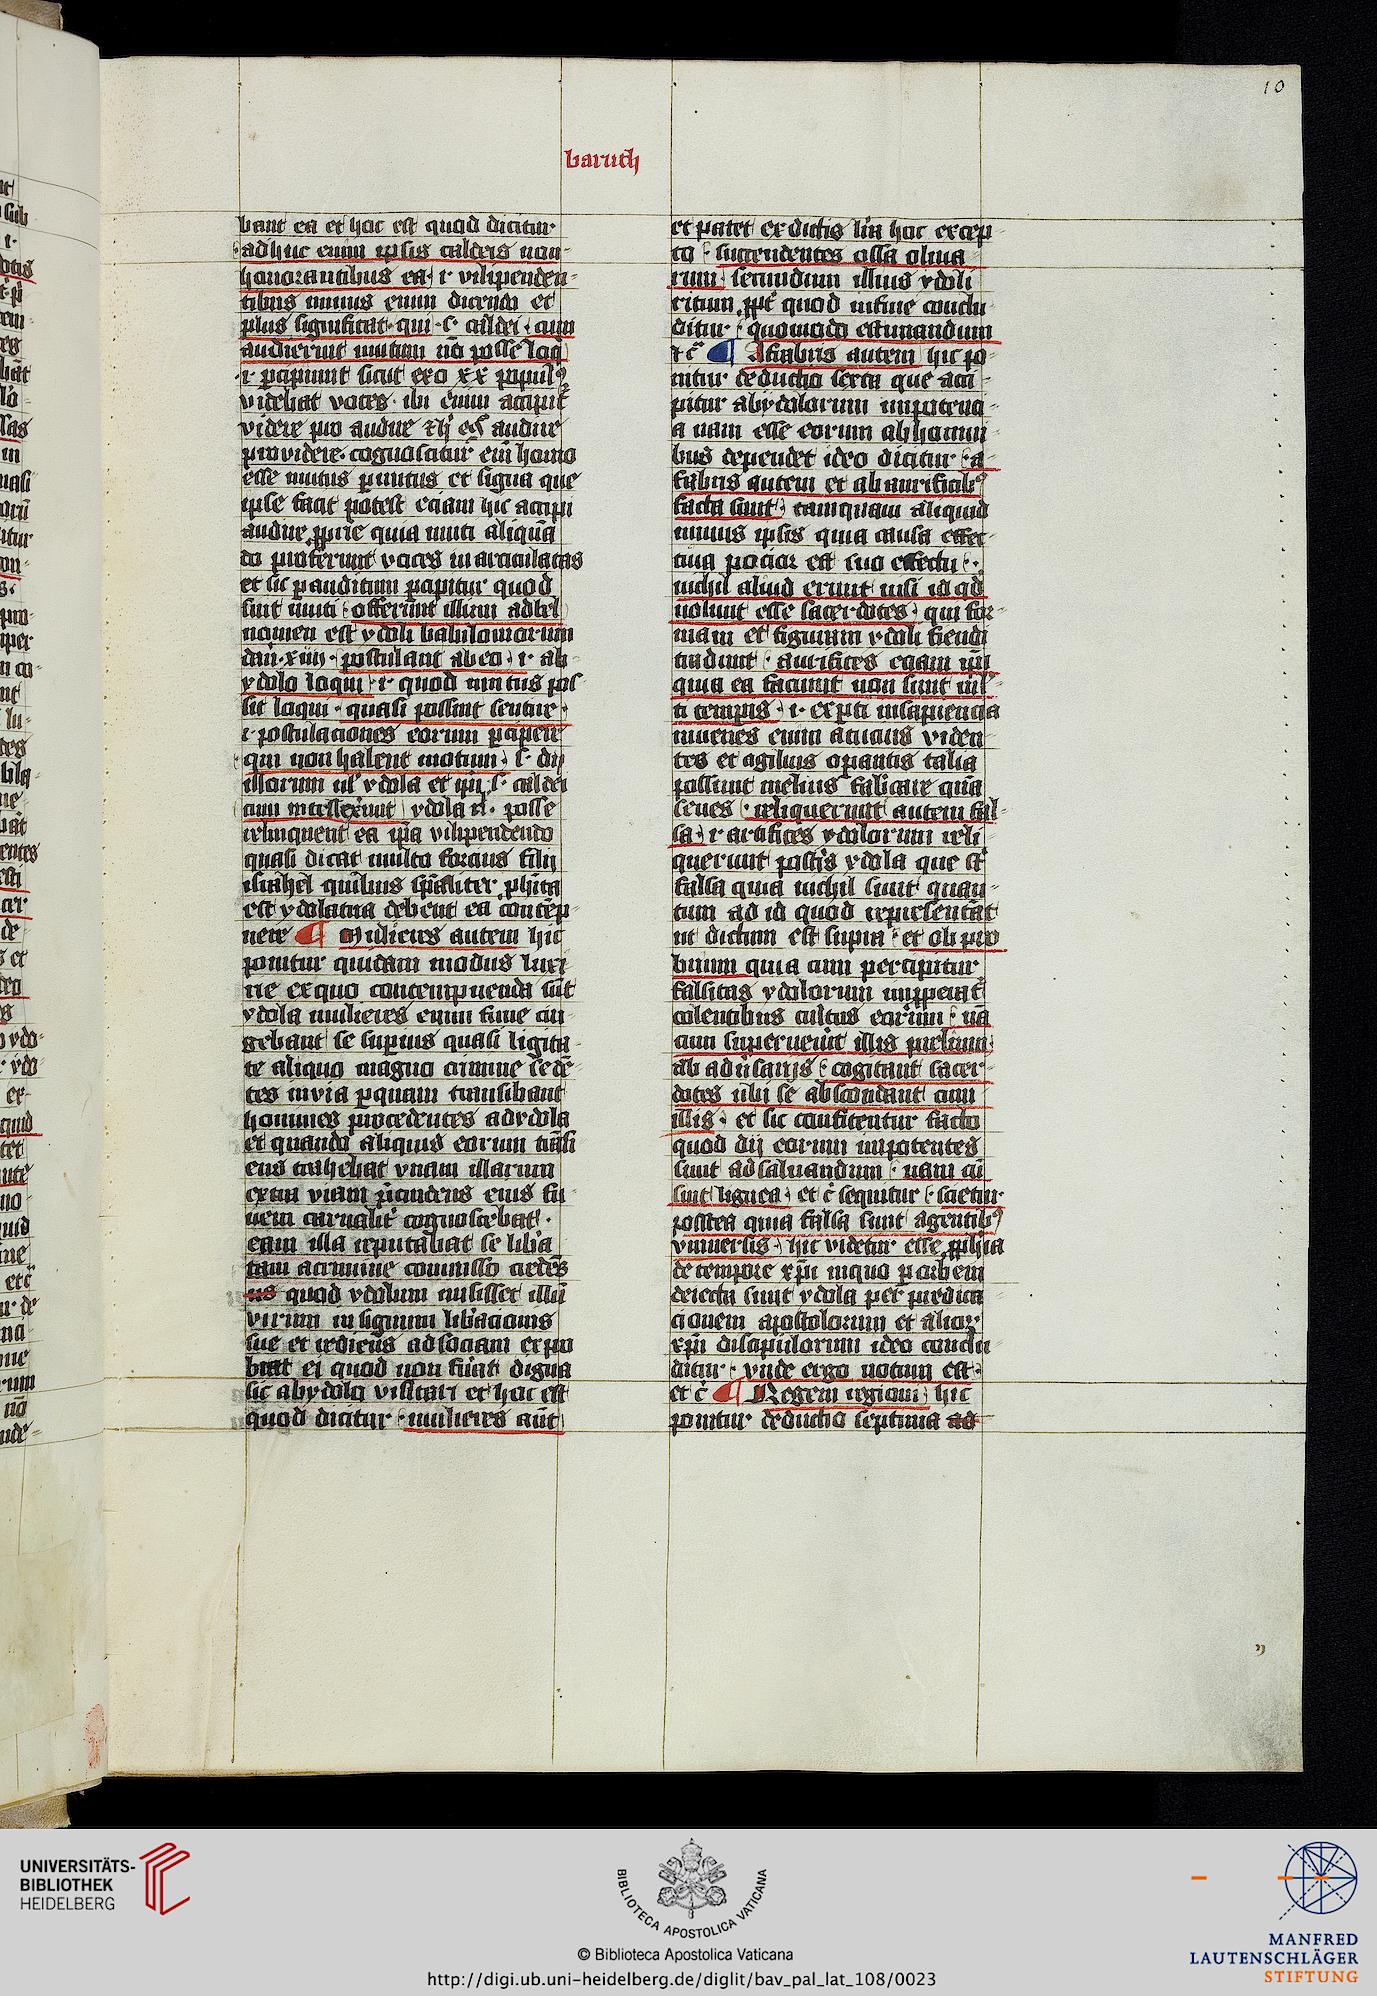 10
baruch
bant ea et hoc est quod dicitur
adhuc enim ipsis caldeis non
honorantibus ea · i · vilipenden
tibus minus enim dicendo et
plus significat · qui · s · caldei · cum
audierint mutum nō posse loq̄
· i · percipiunt sicut exo xx populꝰ
videbat voces · ibi enim accipit̄
videre pro audire
providere · cognoscitur eim̄ homo
esse mutus per nutus et signa que
ipse facit potest eciam hic accipi
audire proprie quia muti aliquā
do proferunt voces inarticulatas
et sic per auditum percipitur quod
sunt muti · offerunt illum ad bel
nomen est ydoli babiloniorum
dan̄ · xiiii · postulant ab eo · i · ab
ydolo loqui · i · quod mutus pos
sit loqui · quasi possint sentire ·
· i · postulaciones eorum percipere
qui non habent motum · s · dij
illorum ul' ydola et ipi · s · caldei
cum intellexerint ydola posse
relinquent ea ipa vilipendendo
quasi dicat multo forcius filij
israhel quibus spāliter phita
est ydolatria debent ea contēp
nere ¶ Mulieres autem hic
ponitur quidam modus luxi
rie ex quo contempnenda sūt
ydola mulieres enim fune cin
gebant se superius quasi ligita
te aliquo magno crimine sedē
tes in via per quam transibant
homines procedentes ad ydola
et quando aliquis eorum trāsi
ens trahebat vnam illarum
extra viam rūpendens eius fu
nem carnalit̄ cognoscebat ·
eam illa reputabat se libā
tam a crimine commisso credēs
us quod ydolum misisset illū
virum in signum libacionis
sue et rediens ad sociam expro
brat ei quod non fuat digna
sic ab ydolo visitari et hoc est
quod dicitur · mulieres aūt
et patet ex dictis lrā hoc excep
to · succendentes ossa oliua
rum · secundum illius ydoli
ritum ppt' quod in fine conclu
ditur · quomodo estimandum
et c̄ ¶ A fabris autem hic po
nitur deductio sexta que acci
pitur ab ydolorum impotenci
a nam esse eorum ab homini
bus dependet ideo dicitur · a
fabris autem et ab aurificibꝰ
facta sunt · tamquam aliquid
minus ipsis quia causa effec
tiua pocior est suo effectu ·
nichil aliud erunt nisi id qd
uolunt esse sacerdotes · qui for
mam et figuram ydoli fiendi
tradunt · aurifices eciam ipi
quia ea faciunt non sunt mul
ti temp̄is · i · exp̄ti insapiencia
iuuenes enim acucius viden
tes et agilius operantis talia
possunt melius fabricare quā
senes · reliquerunt autem fal
sa · i · artifices ydolorum reli
querunt post̄is ydola que st̄
falsa quia nichil sunt quan
tum ad id quod representāt
ut dictum est supra · et ob pro
brium quia cum percipitur
falsitas ydolorum impperat̄
colentibus cultus eorum · nā
cum superuenit illis prelium
ab aduersarijs · cogitant sacer
dotes ubi se abscondant cum
illis · et sic confitentur facto
quod dij eorum impotentes
sunt ad saluandum · nam cū
sint lignea · et c̄ sequitur · scietur
postea quia falsa sunt a gentibꝰ
vniuersis · hic videtur esse pphia
de tempore xpi in quo per orbem
deiecta sunt ydola per predica
cionem apostolorum et alior
xpi discipulorum ideo conclu
ditur · vnde ergo notum est ·
et c̄ ¶ Regem regioni hic
ponitur deductio septima ad
UNIVERSITÄTS-
BIBLIOTHEK
HEIDELBERG
BIBLIOTECA APOSTOLICA VATICANA
© Biblioteca Apostolica Vaticana
http://digi.ub.uni-heidelberg.de/diglit/bav_pal_lat_108/0023
MANFRED
LAUTENSCHLÄGER
STIFTUNG